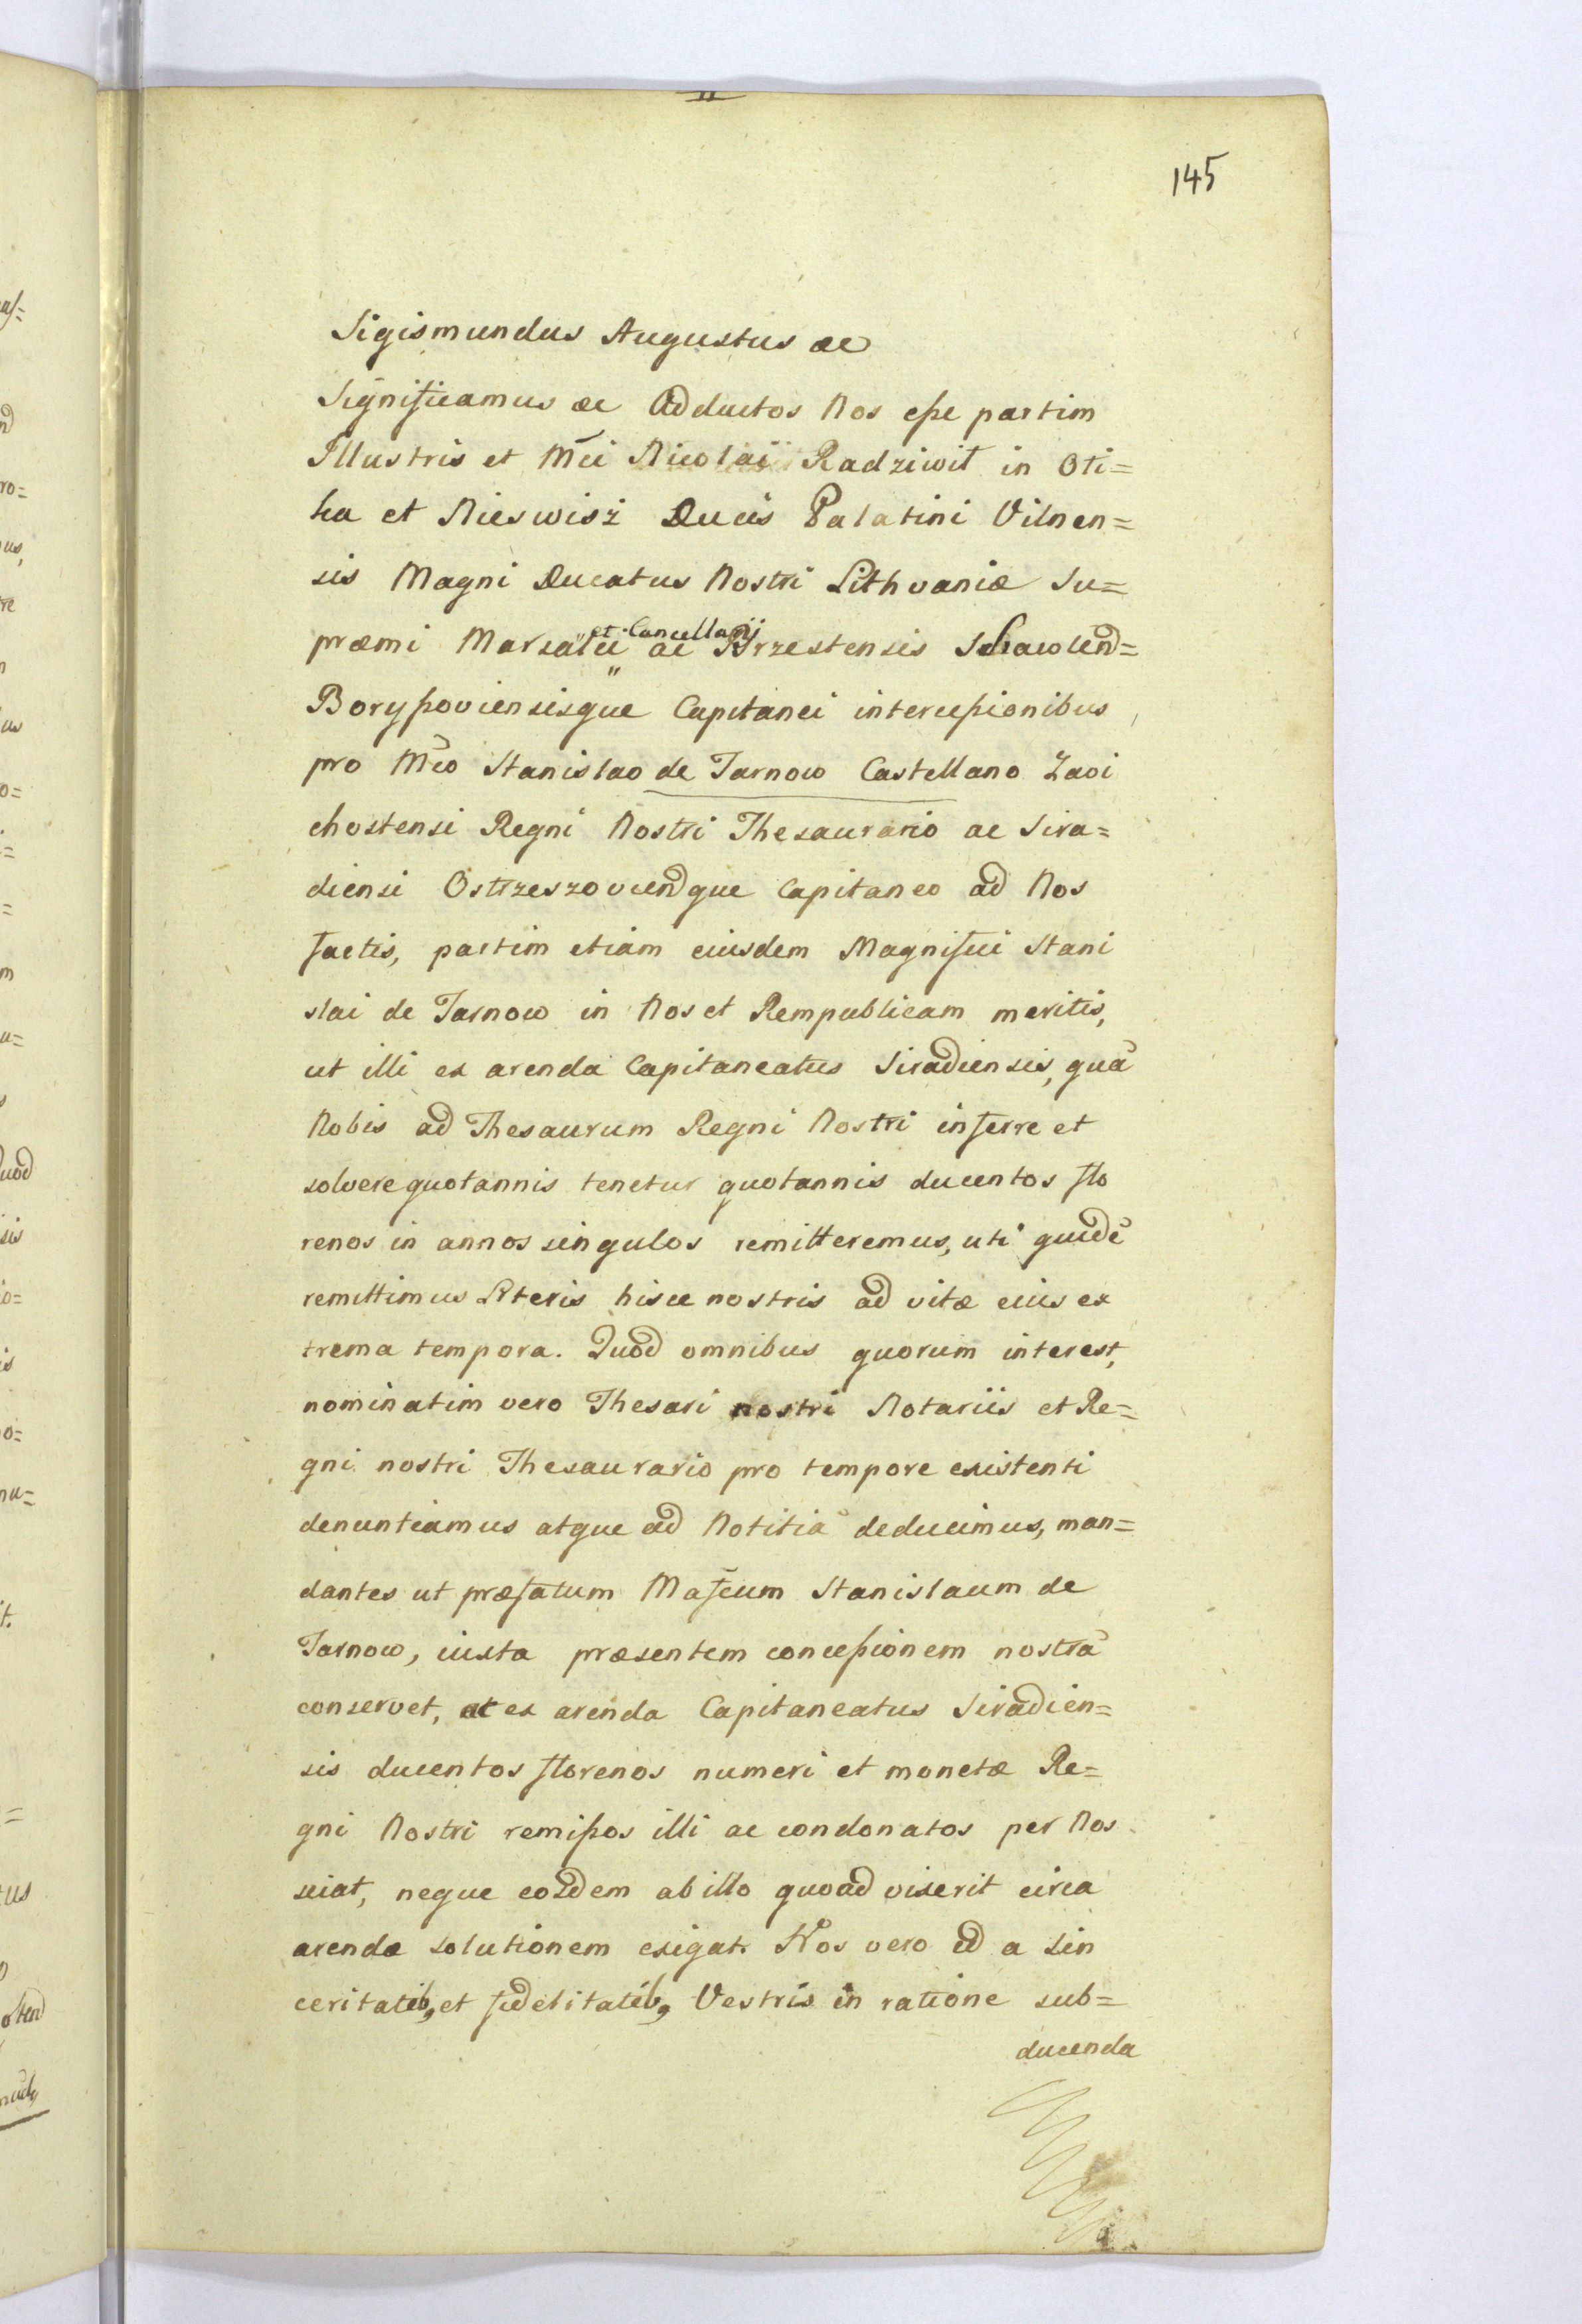 145
Sigismundus Augustus ac
Significamus ac Adductos Nos esse partim
Illustris et Mci Nicolai Radziwił in Oti=
ka et Nieswisż Ducis Palatini Vilnen=
sis Magni Ducatus Nostri Lithvaniæ Su=
præmi Marsalci et Cancellarij ac Brzestensis Schawlen=
Boryssoviensisque Capitanei intercessionibus
pro Mco Stanislao de Tarnow Castellano Zavi
chostensi Regni Nostri Thesaurario ac Sira=
diensi Ostrzeszovien que Capitaneo ad Nos
factis, partim etiam eiusdem Magnifici Stani
slai de Tarnow in Nos et Rempublicam meritis,
ut illi ex arenda Capitaneatus Siradiensis, quã
Nobis ad Thesaurum Regni Nostri inferre et
solvere quotannis tenetur quotannis ducentos flo
renos in annos singulos remitteremus, uti quidẽ
remittimus Literis hisce nostris ad vitæ eius ex
trema tempora. Quod omnibus quorum interest,
nominatim vero Thesari nostri Notariis et Re=
gni nostri Thesaurario pro tempore existenti
denuntiamus atque ad Notitiã deducimus, man=
dantes ut præfatum Mafcum Stanislaum de
Tarnow, iuxta præsentem concessionem nostrã
conservet, ac ex arenda Capitaneatus Siradien=
sis ducentos florenos numeri et monetæ Re=
gni Nostri remissos illi ac condonatos per Nos
sciat, neque eosdem ab illo quoad vixerit circa
arendæ solutionem exigat. Nos vero id a Sin
ceritatib, et fidelitatib, Vestris in ratione sub=
ducenda